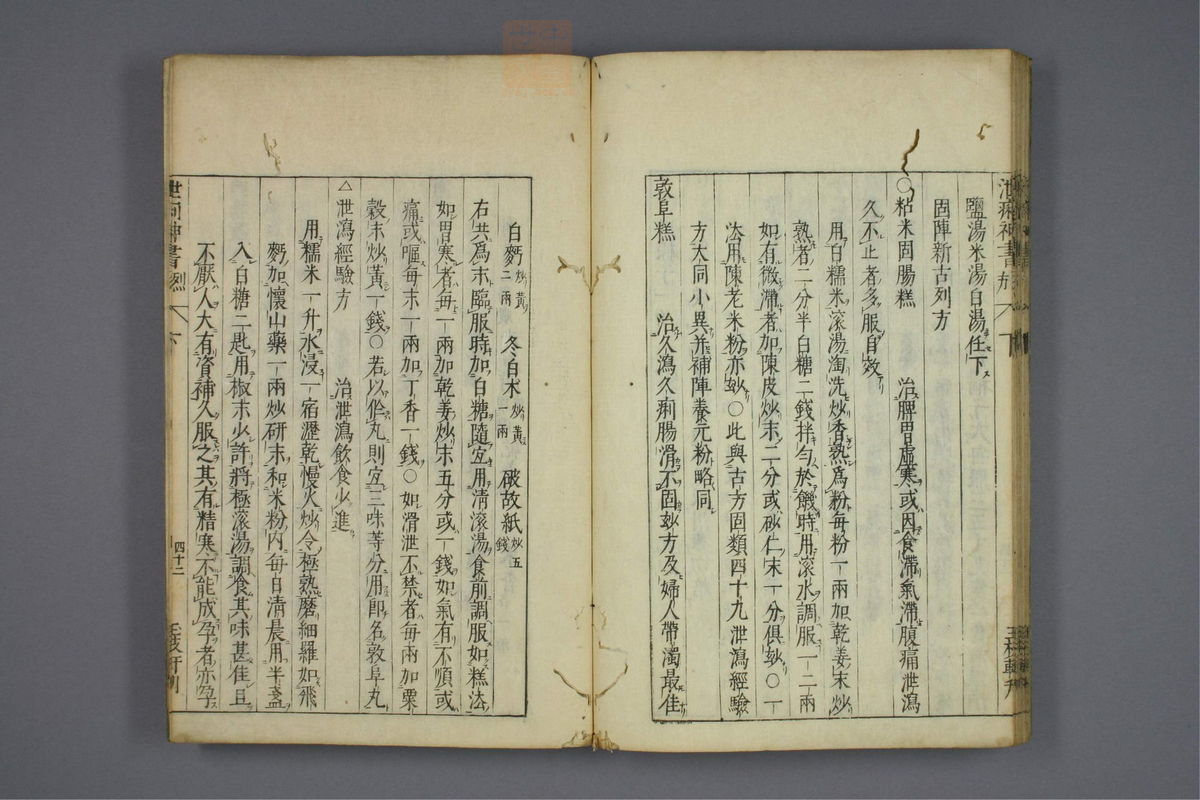 鹽湯米湯白湯任下
固陣新古列方
○粘米固腸糕 治脾胃虛寒或因食滯氣滯腹痛泄瀉
久不止者多服自效
用白糯米滚湯淘洗炒香熟爲粉每粉一兩加乾姜末炒
熟者二分半白糖二錢拌勻於饑時用滚水調服一二兩
如有微滯者加陳皮炒末二分或砂仁末一分俱玅○一
法用陳老米粉亦玅○此與古方固類四十九泄瀉經驗
方大同小異并補陣養元粉略同
敦阜糕 治久瀉久痢腸滑不固玅方及婦人帶濁最佳
白麪炒黃二兩 冬白朮炒黃一兩 破故紙炒五錢
右共爲末臨服時加白糖隨宜用清滚湯食前調服如糕法
如胃寒者每一兩加乾姜炒末五分或一錢如氣有不順或
痛或嘔每末一兩加丁香一錢○如滑泄不禁者每兩加粟
穀末炒黃一錢○若以作丸則宜三味等分用即名敦阜丸
△泄瀉經驗方 治泄瀉飲食少進
用糯米一升水浸一宿瀝乾慢火炒令極熟磨細羅如飛
麪加懷山藥一兩炒研末和米粉內每日清晨用半盞
入白糖二匙用椒末少許將極滚湯調食其味甚佳且
不厭人大有資補久服之其有精寒不能成孕者亦孕
四十二